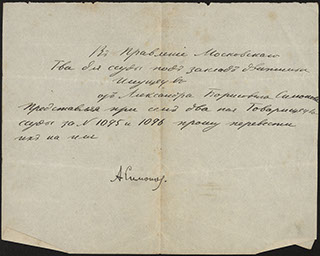 Въ Правленіе Московскаго
Т-ва для ссуды подъ закладъ движимых
Имуществ
отъ Александра Борисовича Симонова
Представляя при семъ два пая Товарищества
ссуды за N 1095 и 1096 прошу перевести
ихъ на имя
АСимонов.